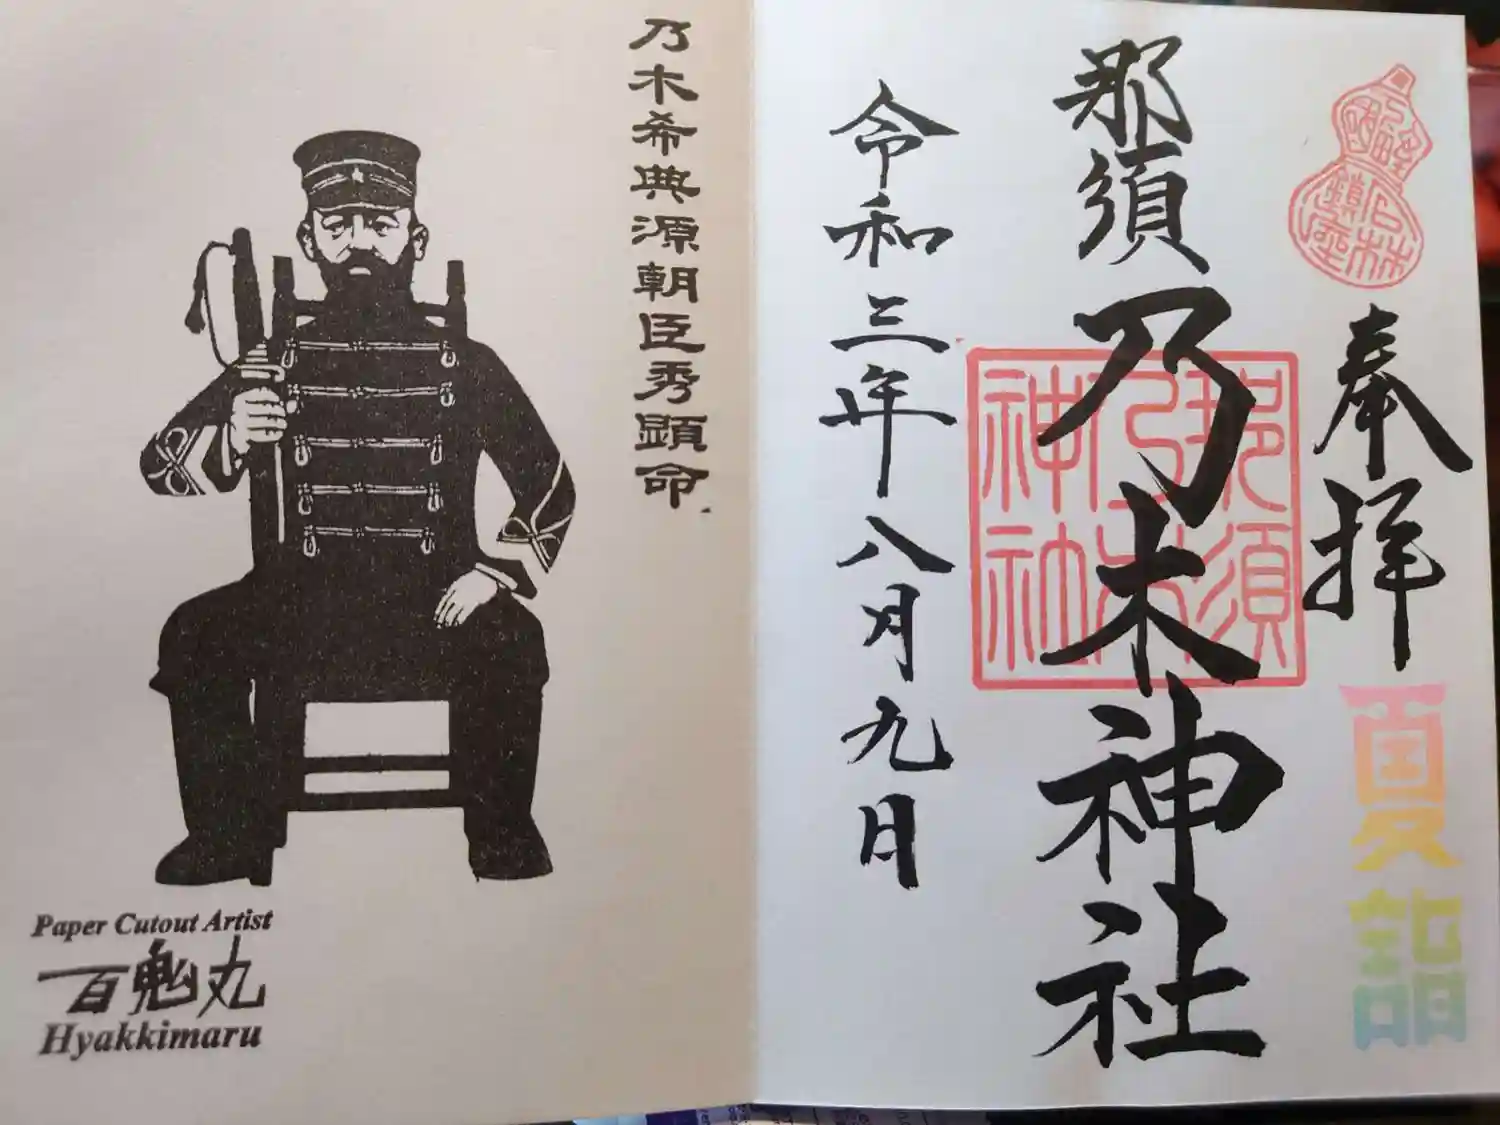 石林鎮座
奉拝
夏詣
那須乃木神社
那須
乃木
神社
令和三年八月九日
乃木希典源朝臣秀顕命
Paper Cutout Artist
百鬼丸
Hyakkimaru